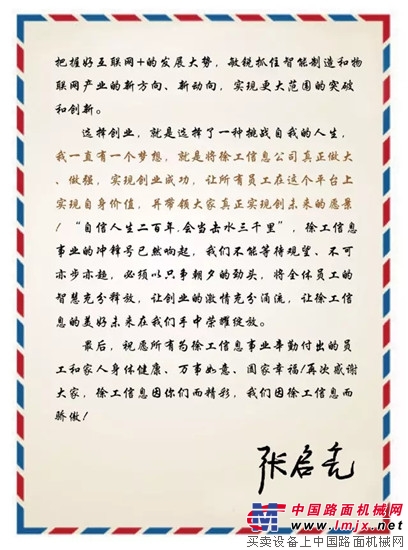 把握好互联网+的发展大势，敏锐抓住智能制造和物
联网产业的新方向、新动向，实现更大范围的突破
和创新。
选择创业，就是选择了一种挑战自我的人生，
我一直有一个梦想，就是将徐工信息公司真正做大
、做强，实现创业成功，让所有员工在这个平台上
实现自身价值，并带领大家真正实现创未来的愿景
！“自信人生二百年，会当击水三千里”，徐工信息
事业的冲锋号已然响起，我们不能等待观望、不可
亦步亦趋，必须以只争朝夕的劲头，将全体员工的
智慧充分释放，让创业的激情充分涌流，让徐工信
息的美好未来在我们手中荣耀绽放。
最后，祝愿所有为徐工信息事业辛勤付出的员
工和家人身体健康、万事如意、阖家幸福！再次感谢
大家，徐工信息因你们而精彩，我们因徐工信息而
骄傲！
张启亮
中国路面机械网
www.lmjx.net
买卖设备上中国路面机械网